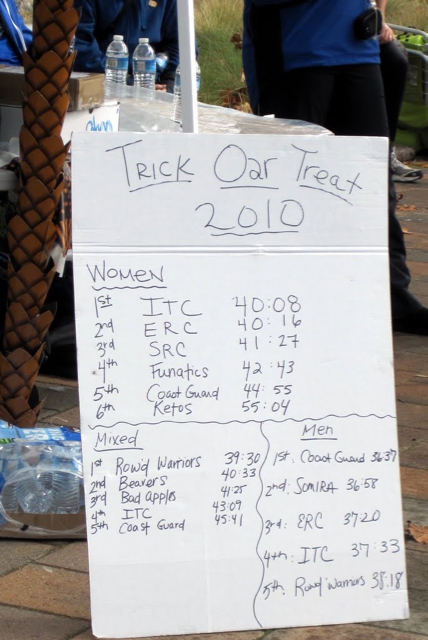 Trick Oar Treat
2010
Women
1st ITC 40:08
2nd ERC 40:16
3rd SRC 41:27
4th Funatics 42:43
5th Coast Guard 44:55
6th Keios 55:04
Mixed
1st Row'd Warriors 39:30
2nd Beavers 40:33
3rd Bad apples 41:25
4th ITC 43:09
5th Coast Guard 45:41
Men
1st: Coast Guard 36:37
2nd: SOMIRA 36:58
3rd: ERC 37:20
4th: ITC 37:33
5th: Row'd Warriors 38:18